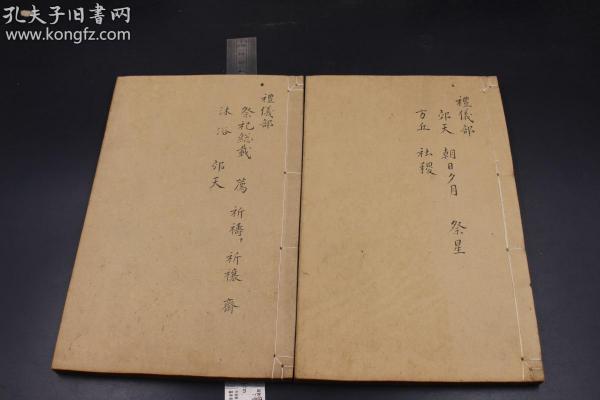 孔夫子旧书网
www.kongfz.com
禮儀部
郊天 朝日夕月 祭星
方丘 社稷
禮儀部
祭祀総載 薦 祈禱,祈禳 齋
沐浴 郊天